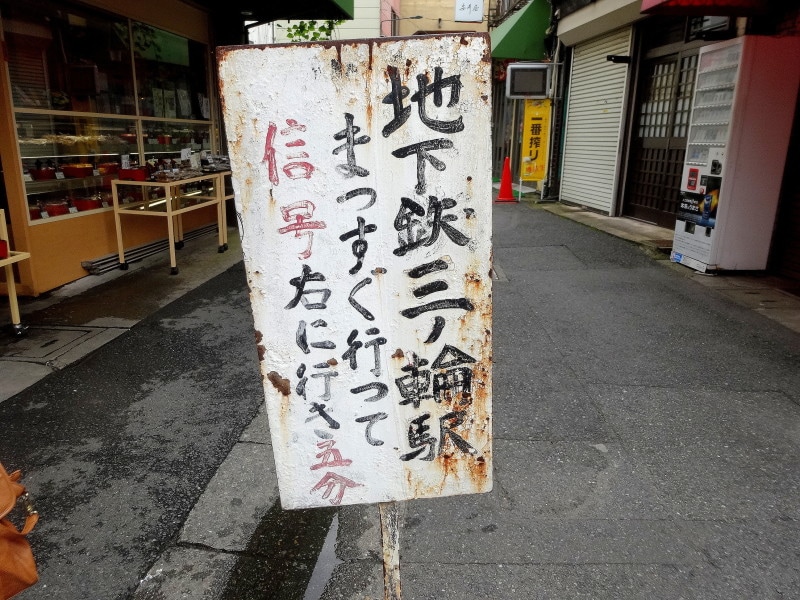 地下鉄三ノ輪駅
まっすぐ行って
信号右に行き五分
一番搾り